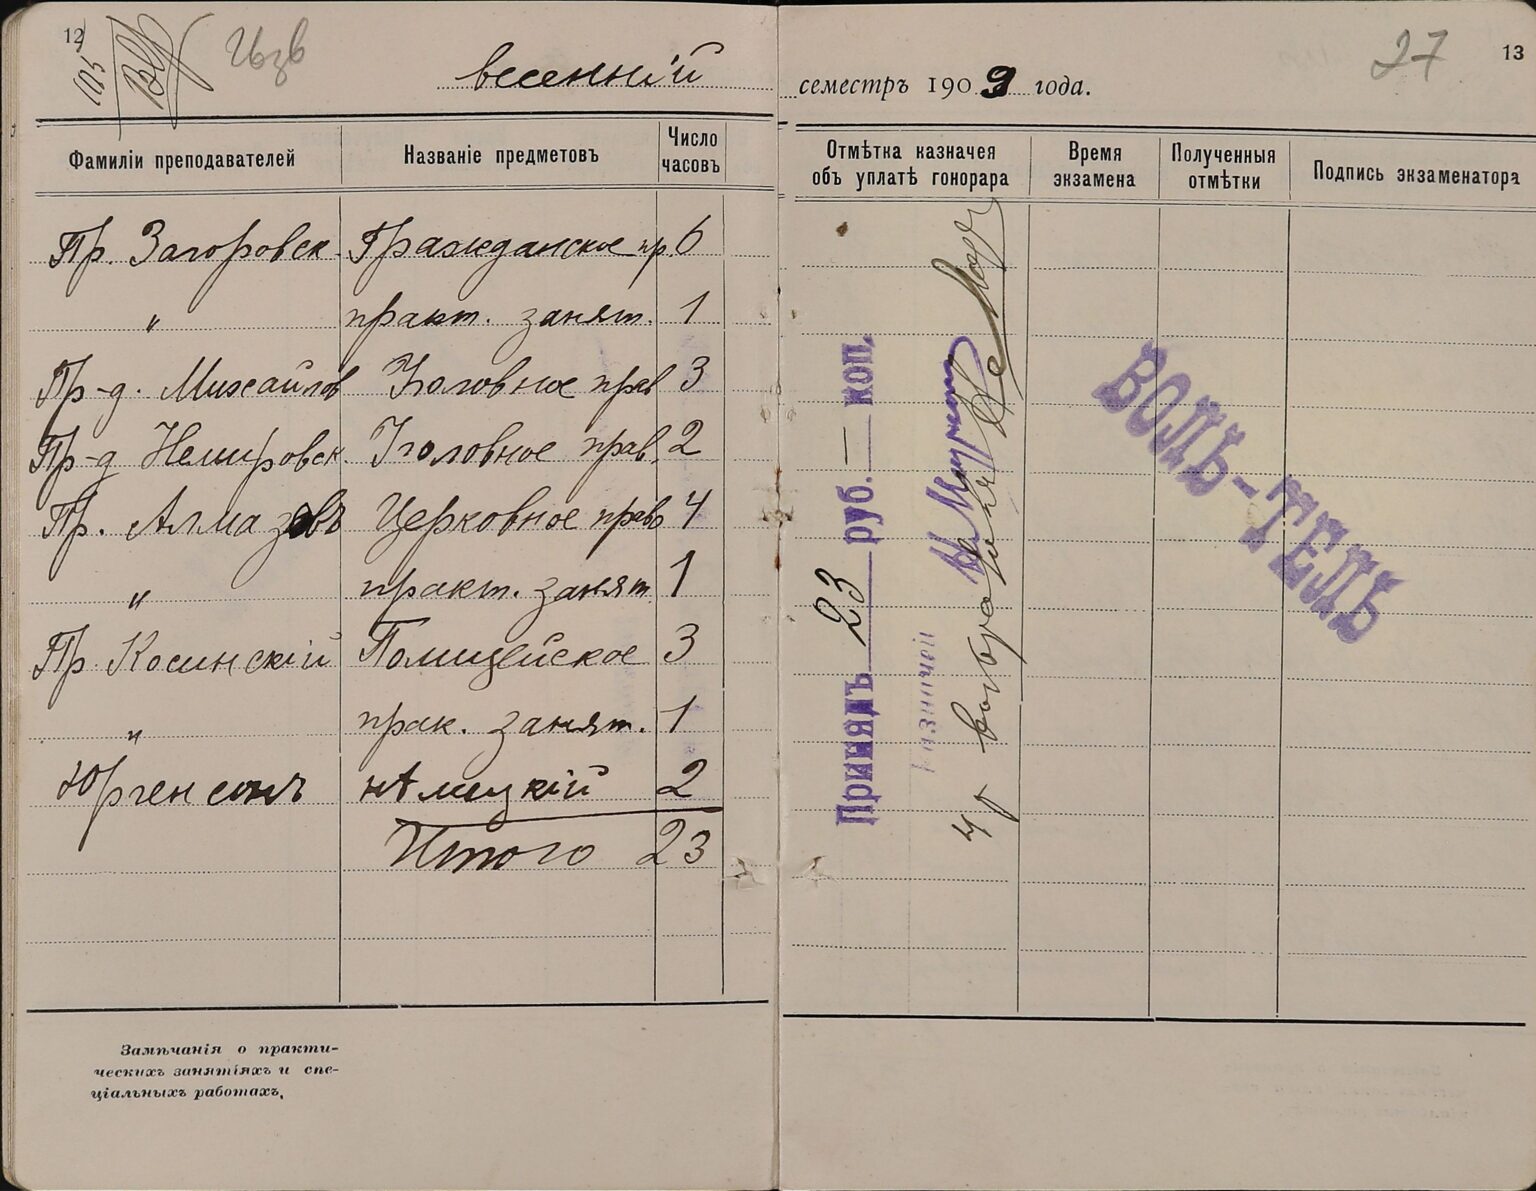 12
105
весенній
Фамиліи преподавателей Названіе предметовъ Число часовъ
Пр. Загоровск. Гражданское пр. 6
" практ. занят. 1
Пр-д. Михайлов Уголовное прав 3
Пр-д Немировск. Уголовное прав. 2
Пр. Алмазовъ Церковное право 4
" практ. занят. 1
Пр. Косинскій Полицейское 3
" прак. занят. 1
Юргенсонъ нѣмецкій 2
Итого 23
Замѣчанія о практи-
ческихъ занятіяхъ и спе-
ціальныхъ работахъ.
27
13
семестръ 1909 года.
Отмѣтка казначея объ уплатѣ гонорара Время экзамена Полученныя отмѣтки Подпись экзаменатора
Принялъ 23 руб. — коп.
Казначей
ВОЛЬ-ТЕЛЬ